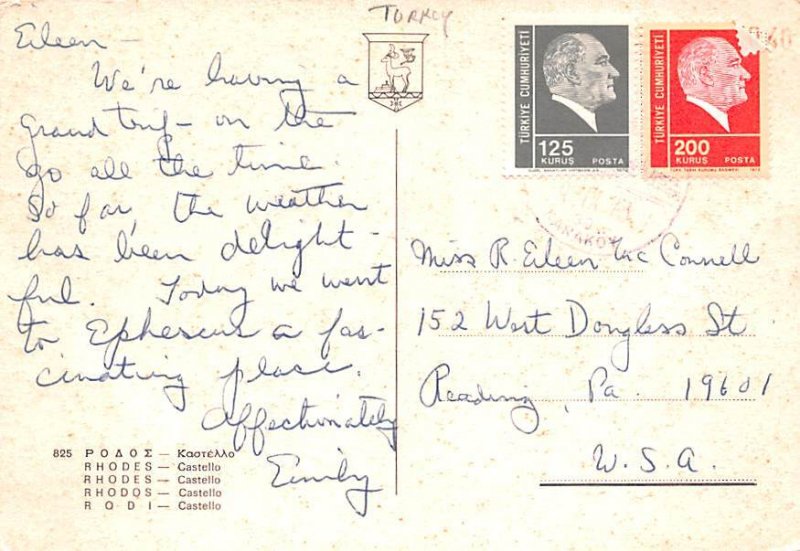 TURKEY
Eileen —
We're having a
grand trip — on the
go all the time.
So far the weather
has been delight-
ful. Today we went
to Ephesus a fas-
cinating place.
Affectionately
Emily
825 ΡΟΔΟΣ — Καστέλλο
RHODES — Castello
RHODES — Castello
RHODOS — Castello
RODI — Castello
TÜRKİYE CUMHURİYETİ
125
KURUŞ POSTA
TÜRKİYE CUMHURİYETİ
200
KURUŞ POSTA
Miss R. Eileen McConnell
152 West Dougless St
Reading, Pa. 19601
U.S.A.